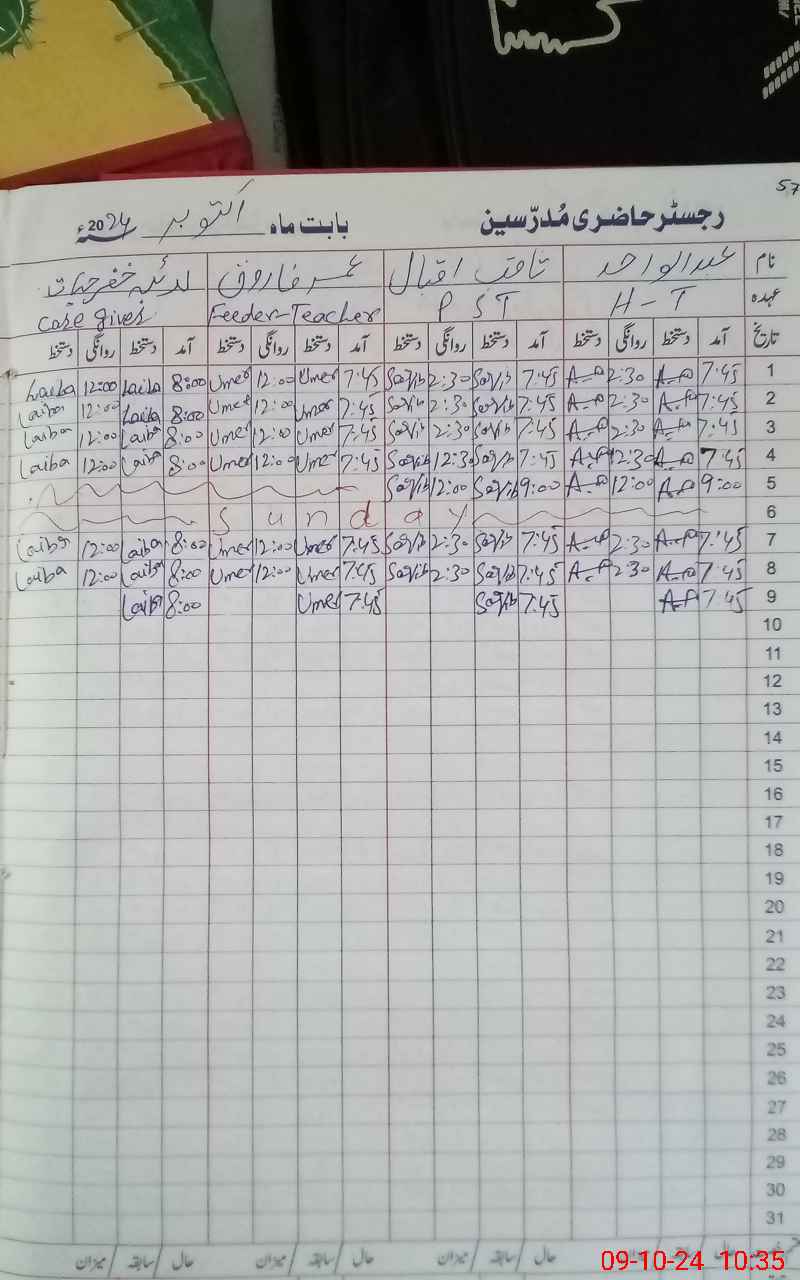 57
رجسٹر حاضری مُدرّسین بابت ماہ اکتوبر 2024ء
نام عبدالواحد ثاقب اقبال عمر فاروق
عہدہ H-T PST Feeder-Teacher Care giver
تاریخ آمد دستخط روانگی دستخط آمد دستخط روانگی دستخط آمد دستخط روانگی دستخط آمد دستخط روانگی دستخط
1 7:45 2:30 7:45 Saqib 2:30 Saqib 7:45 Umer 12:00 Umer 8:00 Laiba 12:00 Laiba
2 7:45 2:30 7:45 Saqib 2:30 Saqib 7:45 Umer 12:00 Umer 8:00 Laiba 12:00 Laiba
3 7:45 2:30 7:45 Saqib 2:30 Saqib 7:45 Umer 12:00 Umer 8:00 Laiba 12:00 Laiba
4 7:45 12:30 7:45 Saqib 12:30 Saqib 7:45 Umer 12:00 Umer 8:00 Laiba 12:00 Laiba
5 9:00 12:00 9:00 Saqib 12:00 Saqib
6 Sunday
7 7:45 2:30 7:45 Saqib 2:30 Saqib 7:45 Umer 12:00 Umer 8:00 Laiba 12:00 Laiba
8 7:45 2:30 7:45 Saqib 2:30 Saqib 7:45 Umer 12:00 Umer 8:00 Laiba 12:00 Laiba
9 7:45 7:45 Saqib 7:45 Umer 8:00 Laiba
10
11
12
13
14
15
16
17
18
19
20
21
22
23
24
25
26
27
28
29
30
31
حال / سابقہ / میزان حال / سابقہ / میزان حال / سابقہ / میزان
09-10-24 10:35